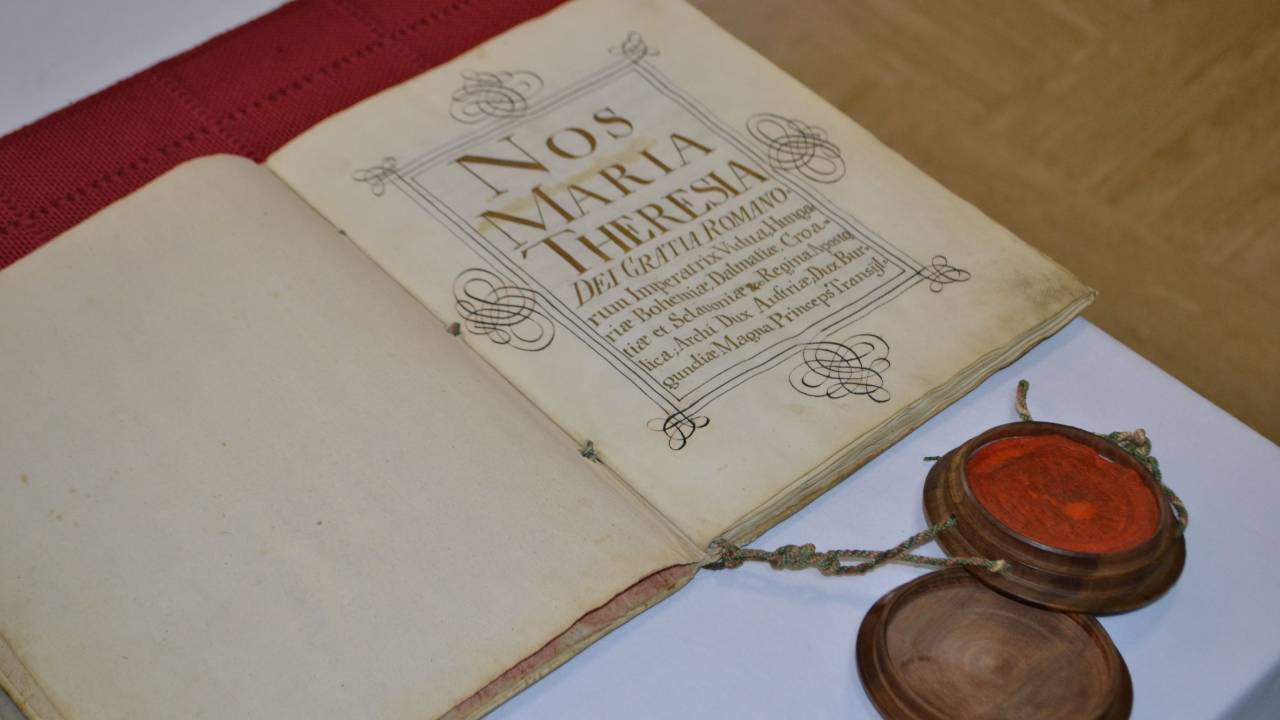 NOS
MARIA
THERESIA
DEI GRATIA ROMANO-
rum Imperatrix Vidua, Hunga-
riæ Bohemiæ, Dalmatiæ, Croa-
tiæ et Sclavoniæ &c. Regina Aposto-
lica, Archi Dux Austriæ, Dux Bur-
gundiæ Magna Princeps Transyl-